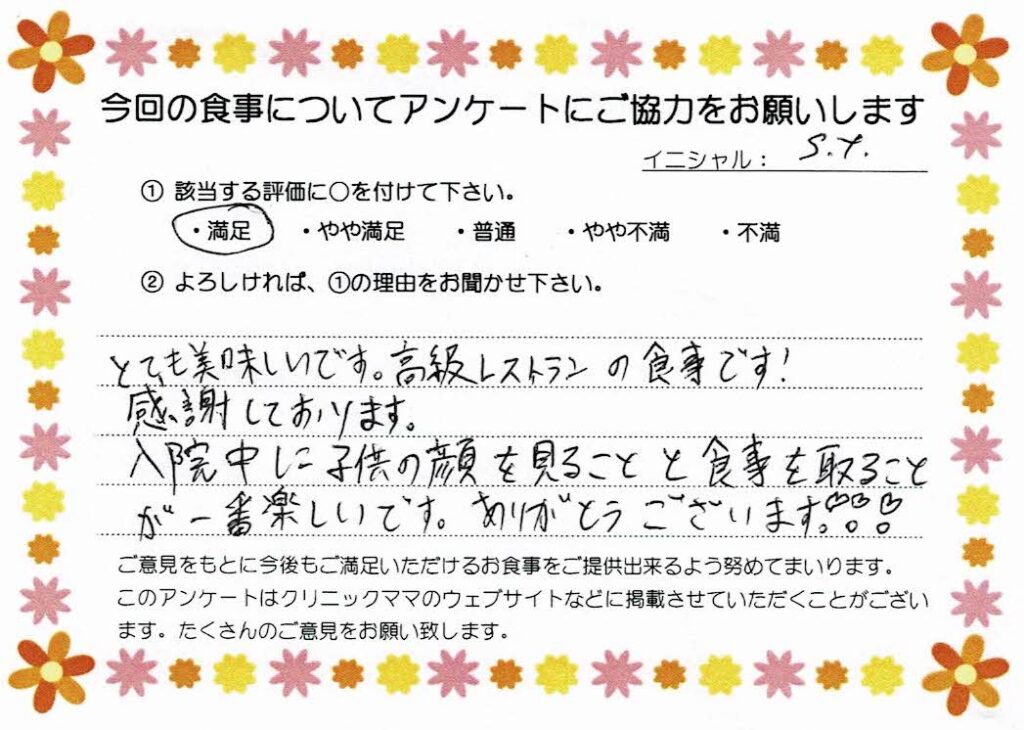 今回の食事についてアンケートにご協力をお願いします
イニシャル： S.Y.
① 該当する評価に○を付けて下さい。
・満足 ・やや満足 ・普通 ・やや不満 ・不満
② よろしければ、①の理由をお聞かせ下さい。
とても美味しいです。高級レストランの食事です!
感謝しております。
入院中に子供の顔を見ることと食事を取ること
が一番楽しいです。ありがとうございます。♡♡♡
ご意見をもとに今後もご満足いただけるお食事をご提供出来るよう努めてまいります。
このアンケートはクリニックママのウェブサイトなどに掲載させていただくことがござい
ます。たくさんのご意見をお願い致します。